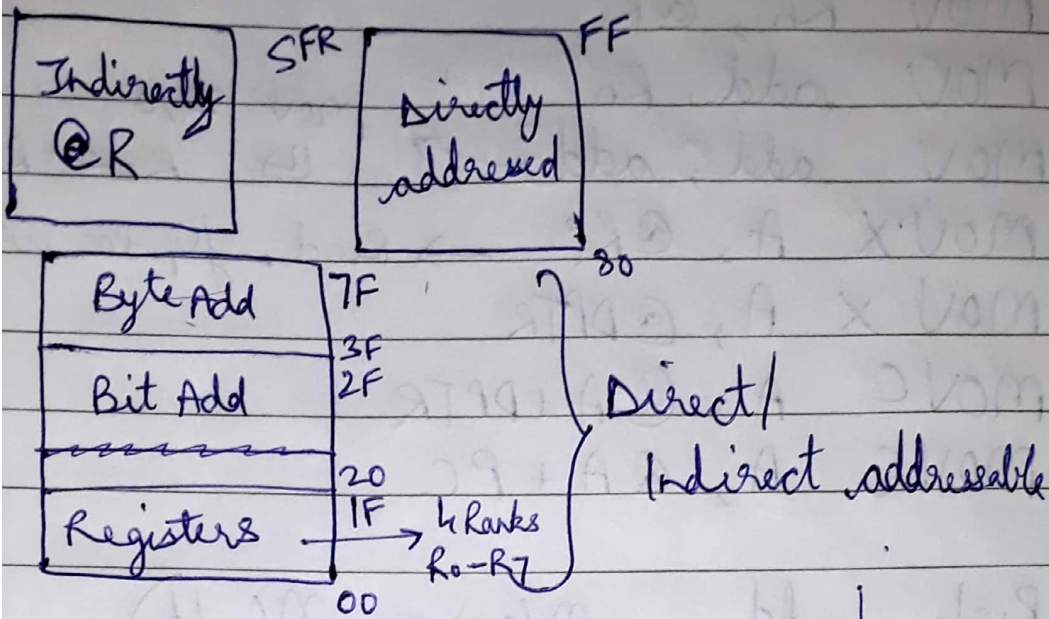 Indirectly
@R
SFR
Directly
addressed
FF
80
Byte Add
7F
3F
Bit Add
2F
20
Registers
1F
4 Banks
R0-R7
00
Direct/
Indirect addressable